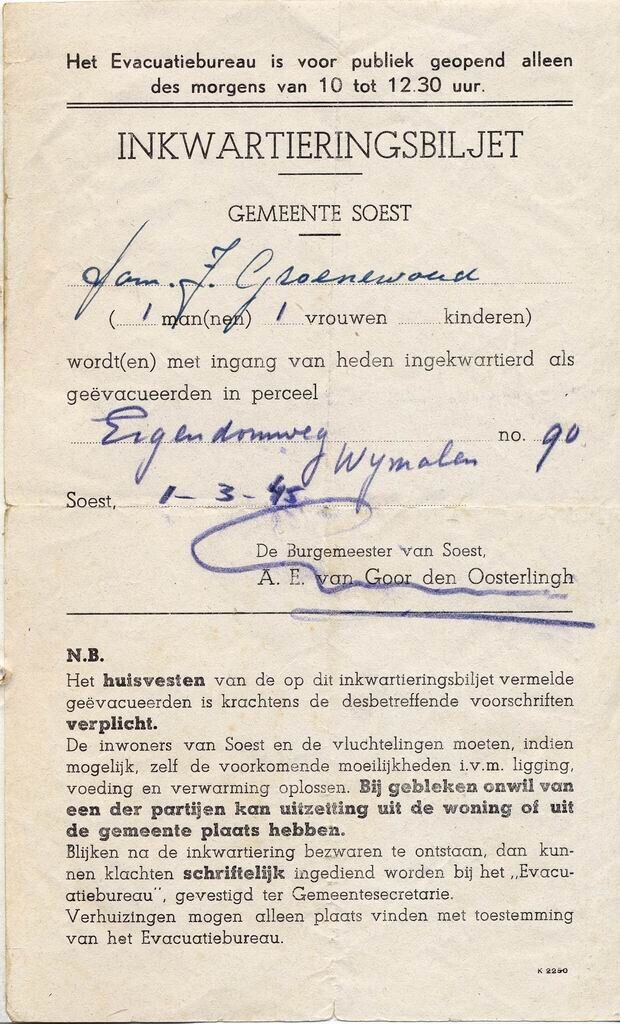 Het Evacuatiebureau is voor publiek geopend alleen
des morgens van 10 tot 12.30 uur.
INKWARTIERINGSBILJET
GEMEENTE SOEST
fam. J. Groenewoud
( 1 man(nen) 1 vrouwen ........ kinderen)
wordt(en) met ingang van heden ingekwartierd als
geëvacueerden in perceel
Eigendomweg Wymalen no. 90
Soest, 1-3-45
De Burgemeester van Soest,
A. E. van Goor den Oosterlingh
N.B.
Het huisvesten van de op dit inkwartieringsbiljet vermelde
geëvacueerden is krachtens de desbetreffende voorschriften
verplicht.
De inwoners van Soest en de vluchtelingen moeten, indien
mogelijk, zelf de voorkomende moeilijkheden i.v.m. ligging,
voeding en verwarming oplossen. Bij gebleken onwil van
een der partijen kan uitzetting uit de woning of uit
de gemeente plaats hebben.
Blijken na de inkwartiering bezwaren te ontstaan, dan kun-
nen klachten schriftelijk ingediend worden bij het „Evacu-
atiebureau", gevestigd ter Gemeentesecretarie.
Verhuizingen mogen alleen plaats vinden met toestemming
van het Evacuatiebureau.
K 2250